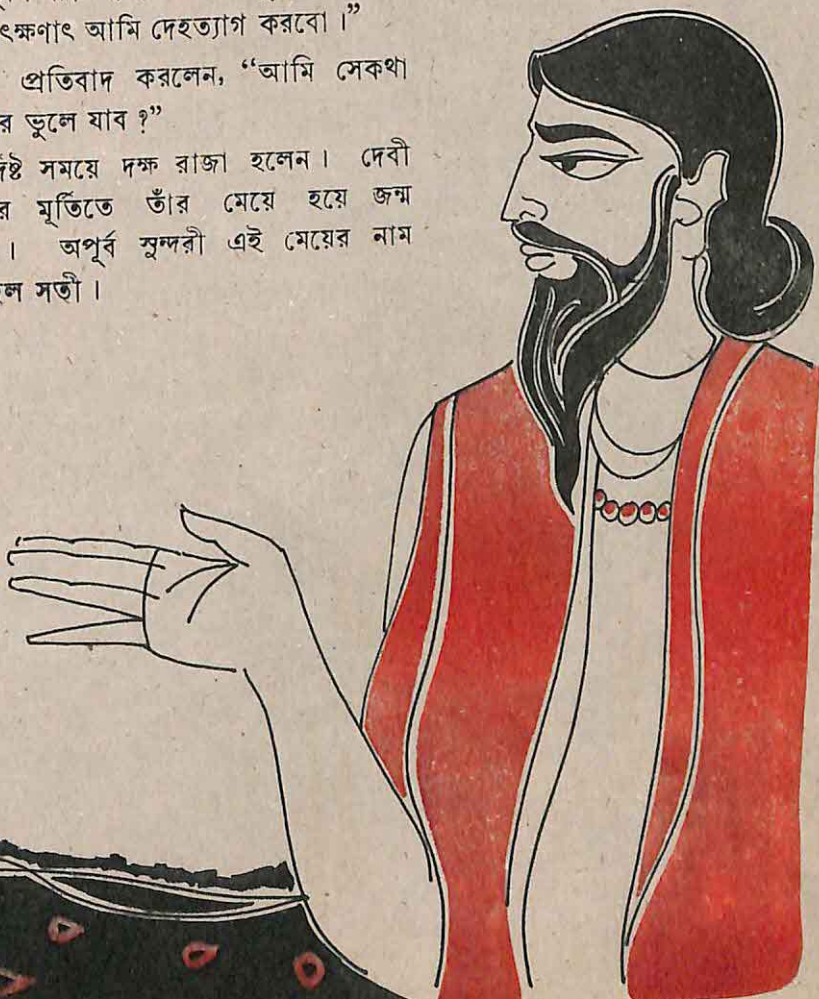 ৎক্ষণাৎ আমি দেহত্যাগ করবো।”
প্রতিবাদ করলেন, “আমি সেকথা
র ভুলে যাব ?”
র্দিষ্ট সময়ে দক্ষ রাজা হলেন। দেবী
র মূর্তিতে তাঁর মেয়ে হয়ে জন্ম
। অপূর্ব সুন্দরী এই মেয়ের নাম
ল সতী।